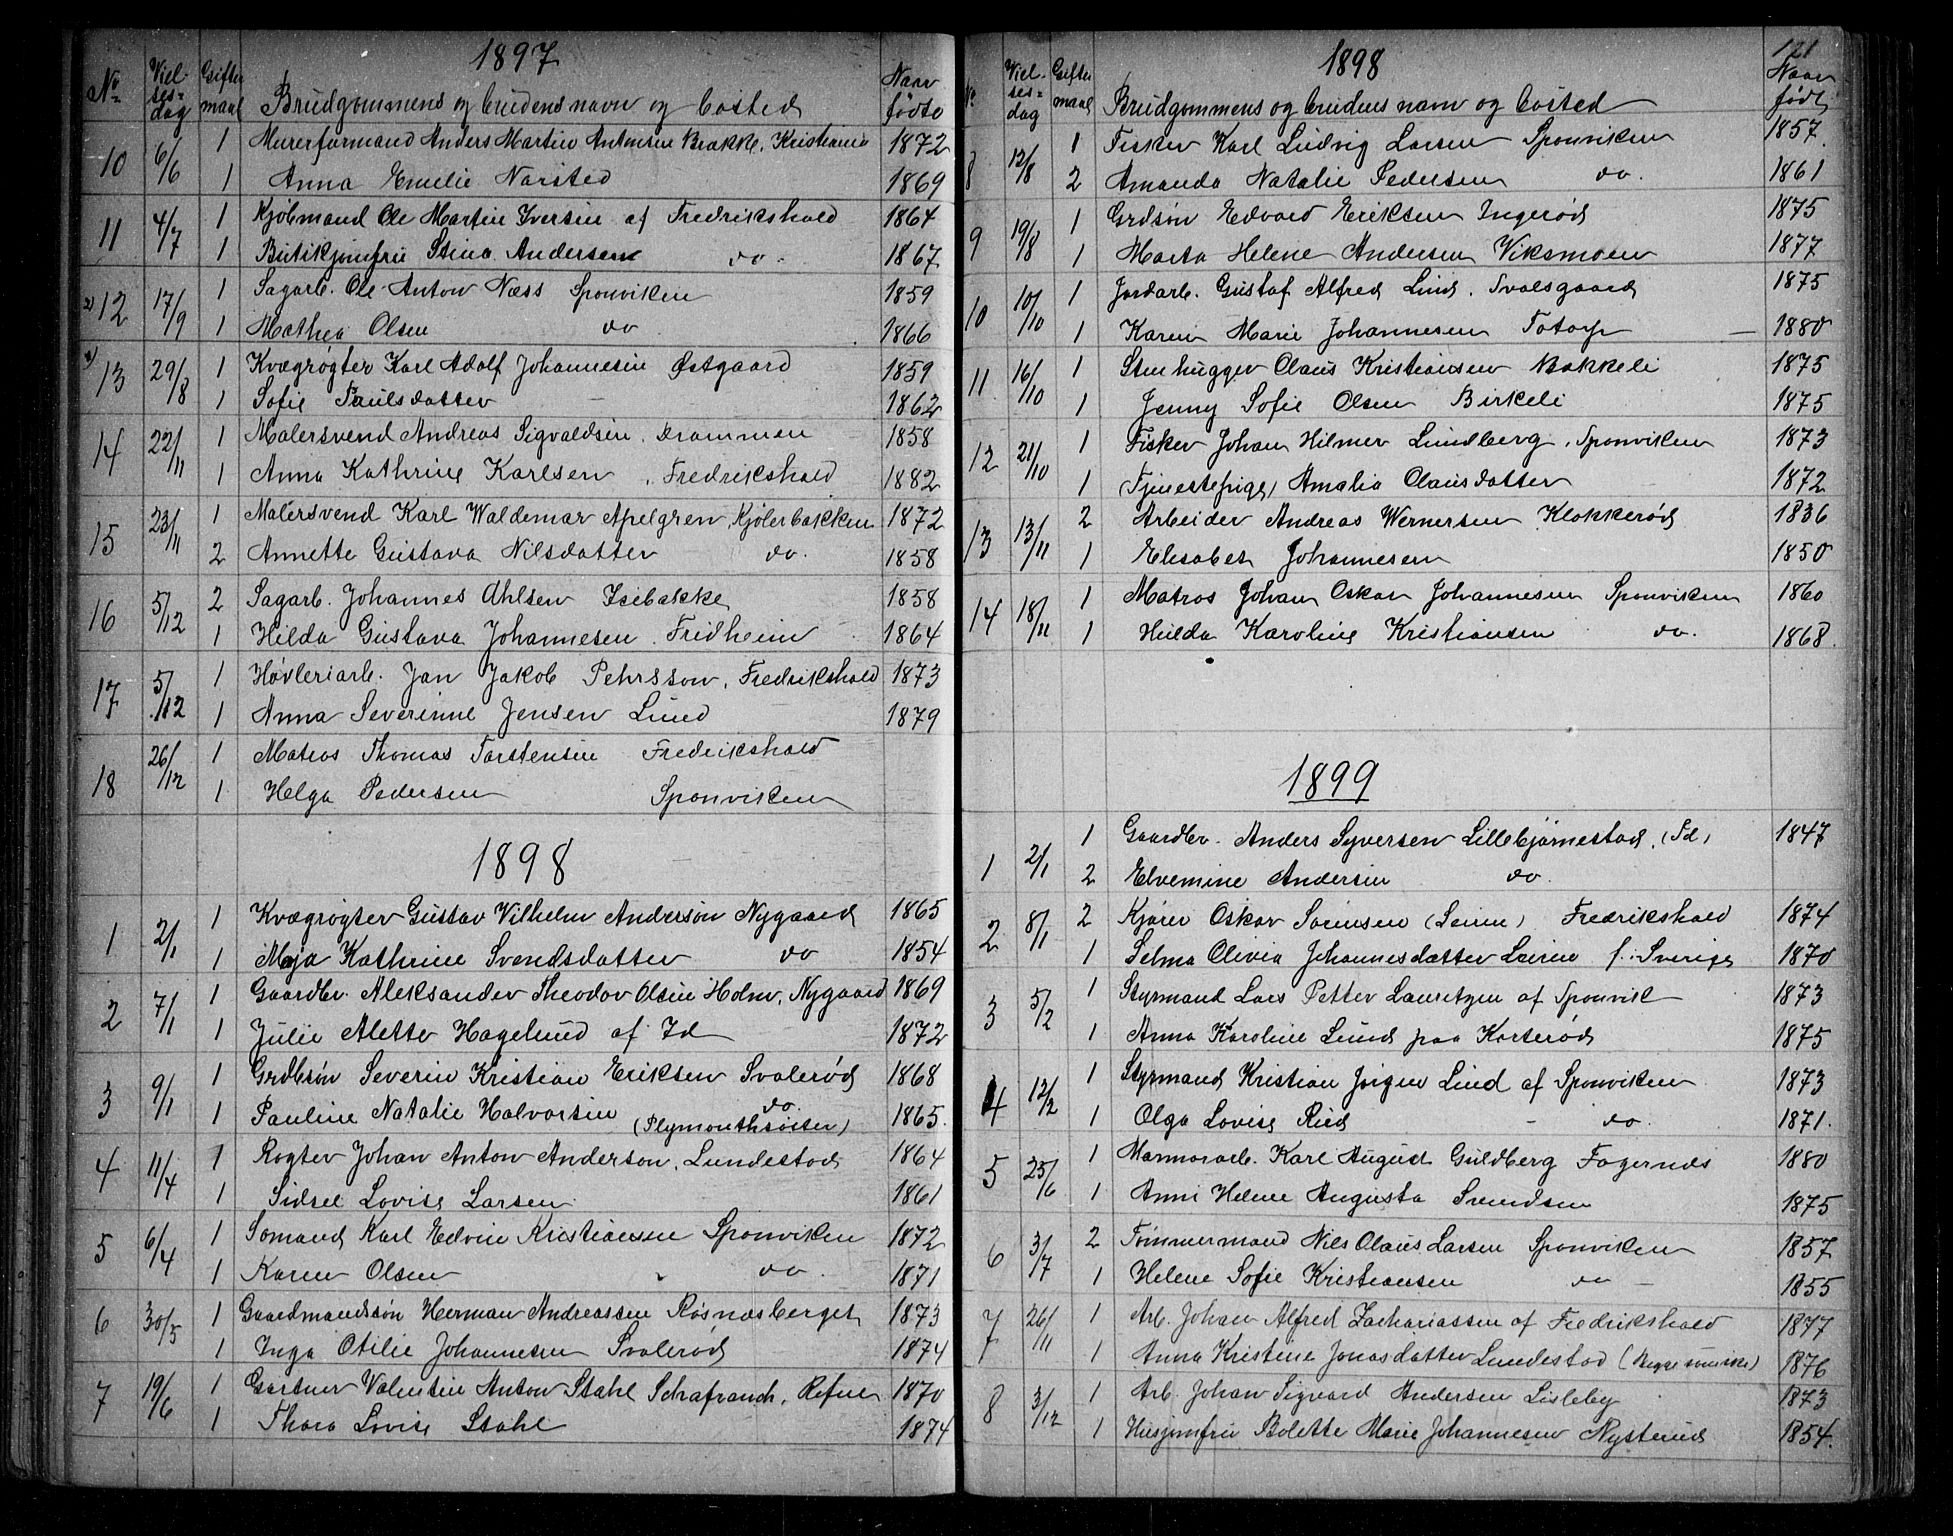 1897
No Vielsesdag Giftermaal Brudgommens og brudens navn og bosted Naar fødte
10 6/6 1 Murerformand Anders Martin Antonsen Brække, Kristiania 1872
1 Anna Emelie Narsted 1869
11 4/7 1 Kjøbmand Ole Martin Iversen af Fredrikshald 1864
1 Butikjomfru Stina Andersen do. 1867
12 17/9 1 Sagarb. Ole Anton Næss Sponviken 1859
1 Mathea Olsen do 1866
13 29/8 1 Kvægrøgter Karl Adolf Johannesen Østgaard 1859
1 Sofie Paulsdatter 1862
14 22/11 1 Malersvend Andreas Sigvaldsen, Drammen 1858
1 Anna Kathrine Karlsen, Fredrikshald 1882
15 23/11 1 Malersvend Karl Waldemar Apelgren, Kjølerbakken 1872
2 Annette Gustava Nilsdatter do. 1858
16 5/12 2 Sagarb. Johannes Ahlsen Isebakke 1858
1 Hilda Gustava Johannesen Fridheim 1864
17 5/12 1 Høvleriarb. Jan Jakob Pehrsson, Fredrikshald 1873
1 Anna Severinne Jensen Lund 1879
18 26/12 1 Matros Thomas Torstensen Fredrikshald
1 Helga Pedersen Sponviken
1898
1 2/1 1 Kvægrøgter Gustav Vilhelm Anderson Nygaard 1865
1 Maja Kathrine Svendsdatter do 1854
2 7/1 1 Gaardbr. Aleksander Theodor Olsen Holm, Nygaard 1869
1 Julie Alette Hagelund af Id 1872
3 9/1 1 Grdbsøn Severin Kristian Eriksen Svalerød 1868
1 Pauline Natalie Halvorsen do. (Plymouthsøster) 1865
4 11/4 1 Røgter Johan Anton Anderson, Lundestad 1864
1 Sidsel Lovise Larsen 1861
5 6/4 1 Sømand Karl Edvin Kristiansen Sponviken 1872
1 Karen Olsen do. 1871
6 30/5 1 Gaardmandssøn Herman Andreassen Røsnæsberget 1873
1 Inga Otilie Johannesen Svalerød 1874
7 19/6 1 Gartner Valentin Anton Stahl Schafranch, Refne 1870
1 Thora Lovise Stahl 1874
121
1898
No Vielsesdag Giftermaal Brudgommens og brudens navn og bosted Naar født
8 12/8 1 Fisker Karl Ludvig Larsen Sponviken 1857
2 Amanda Natalie Pedersen do. 1861
9 19/8 1 Grdsøn Edvard Eriksen Ingerød 1875
1 Marta Helene Andersen Viksmoen 1877
10 10/10 1 Jordarb. Gustaf Alfred Lind. Svalsgaard 1875
1 Karen Marie Johannesen Totorp 1880
11 16/10 1 Stenhugger Claus Kristiansen Bakkeli 1875
1 Jenny Sofie Olsen Birkeli 1875
12 21/10 1 Fisker Johan Hilmer Lundberg, Sponviken 1873
1 (Tjenestepige) Amalia Clausdatter 1872
13 13/11 2 Arbeider Andreas Wernersen Klokkerød 1836
1 Elisabet Johannesen 1850
14 18/11 1 Matros Johan Oskar Johannesen Sponviken 1860
1 Hulda Karoline Kristiansen do. 1868
1899
1 2/1 1 Gaardbr. Anders Syversen Lillebjørnestad. (Id) 1847
2 Elvemine Andersen do. 1
2 8/1 2 Kjører Oskar Sørensen (Leiren) Fredrikshald 1874
1 Selma Olivia Johannesdatter Leiren f. i Sverige 1870
3 5/2 1 Styrmand Lars Petter Lauritzen af Sponvik 1873
1 Anna Karoline Lund paa Korterød 1875
4 12/2 1 Styrmand Kristian Jørgen Lind af Sponviken 1873
1 Olga Lovise Rød do. 1871.
5 25/6 1 Marmorarb. Karl August Guldberg Fagernæs 1880
1 Anni Helene Augusta Svendsen 1875
6 3/7 2 Tømmermand Nils Claus Larsen Sponviken 1857
1 Helene Sofie Kristiansen do 1855
7 26/11 1 Arb. Johan Alfred Zachariassen af Fredrikshald 1877
1 Anna Kristine Jonasdatter Lundestad (Begge svenske) 1876
8 3/12 1 Arb. Johan Sigvard Andersen Lisleby 1873
1 Husjomfru Bolette Marie Johannesen Nysterud 1854.